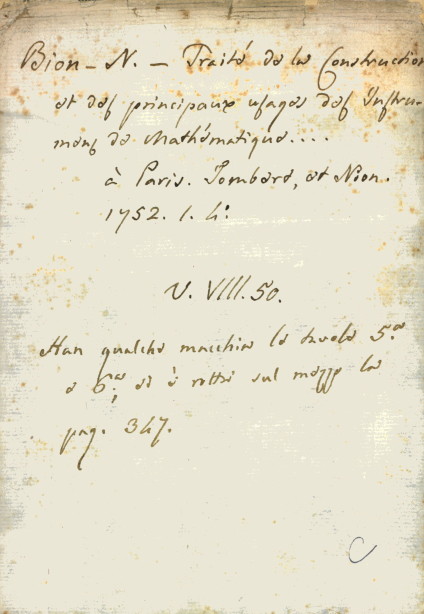 Bion - N. - Traité de la Construction
et des principaux usages des Instru-
mens de Mathématique....
à Paris. Jombert, et Nion.
1752. 1. 4:
V. VIII. 50.
Han qualche macchia le tavole 5.a
e 6.a, si è rotta sul mezzo la
pag. 347.
C